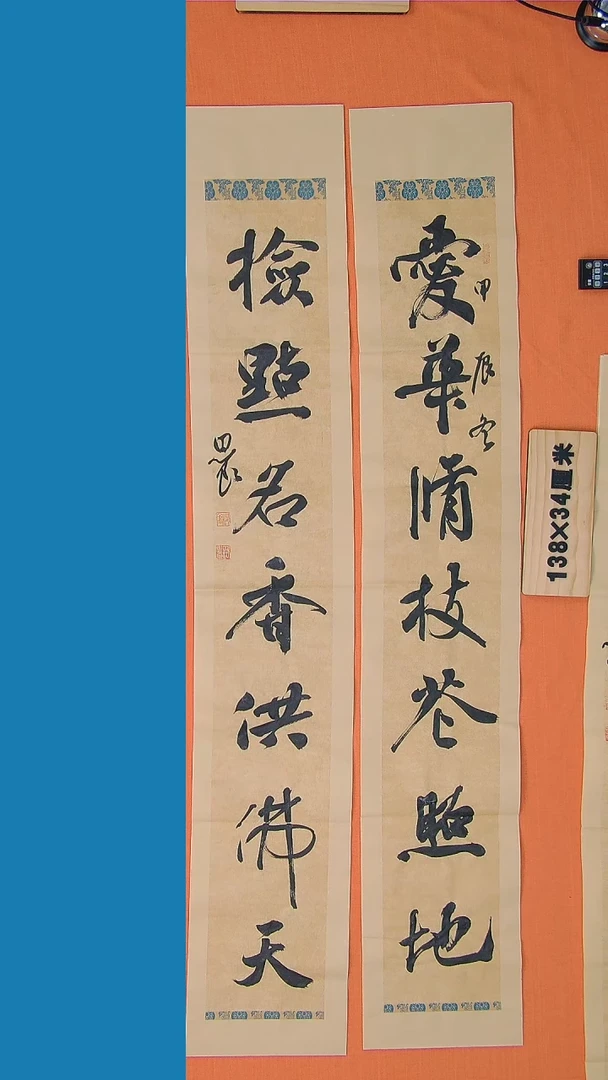 愛華脩枝花照地
甲辰冬
檢點名香供佛天
138×34厘米